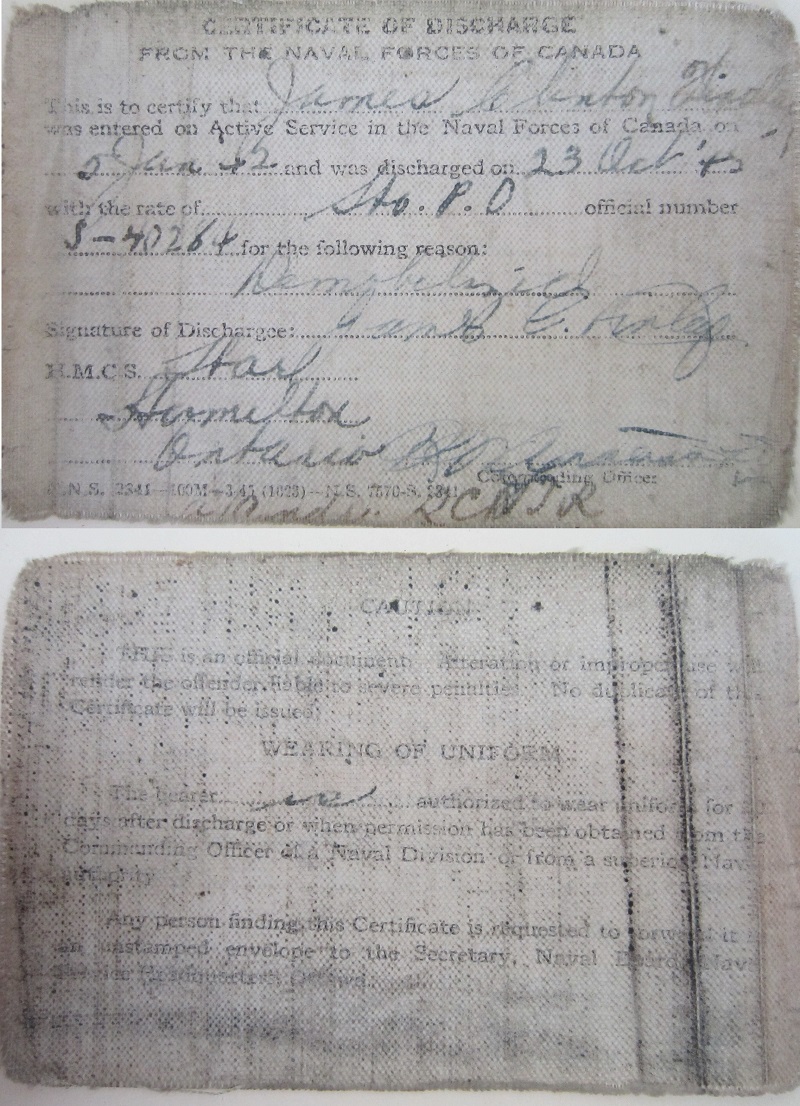 CERTIFICATE OF DISCHARGE
FROM THE NAVAL FORCES OF CANADA
This is to certify that James Clinton
was entered on Active Service in the Naval Forces of Canada on
5 Jan 42 and was discharged on 23 Oct '45
with the rate of Sto. P.O official number
for the following reason:
Demobilized
Signature of Dischargee: James C. Finley
H.M.C.S. Star
Hamilton
Ontario
Commanding Officer
N.S. 2341—100M—3-45 (1023)—N.S. 7570-S. 2341
RCNVR
CAUTION
THIS is an official document. Alteration or improper use will
render the offender liable to severe penalties. No duplicate of this
Certificate will be issued.
WEARING OF UNIFORM
The bearer is authorized to wear uniform for
days after discharge or when permission has been obtained from the
Commanding Officer of a Naval Division or from a superior Naval
authority
Any person finding this Certificate is requested to forward it
an unstamped envelope to the Secretary, Naval Board, Naval
Service Headquarters, Ottawa